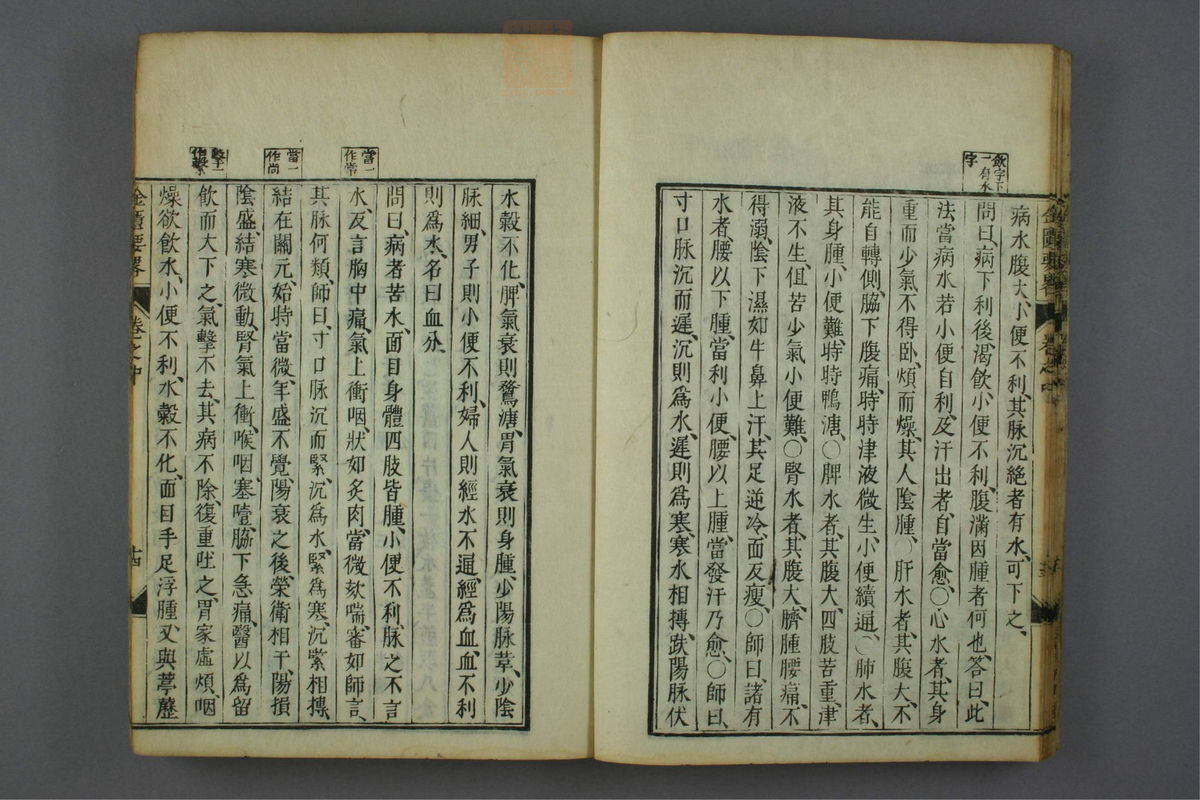 飲字下一有水字
病水腹大、小便不利、其脉沉絕者有水、可下之、
問曰、病下利後、渴飲、小便不利、腹滿因腫者何也、答曰、此
法當病水、若小便自利、及汗出者、自當愈、〇心水者、其身
重而少氣不得卧、煩而燥、其人陰腫、〇肝水者、其腹大、不
能自轉側、脇下腹痛、時時津液微生、小便續通、〇肺水者、
其身腫、小便難、時時鴨溏、〇脾水者、其腹大、四肢苦重、津
液不生、但苦少氣小便難、〇腎水者、其腹大、臍腫腰痛、不
得溺、陰下濕如牛鼻上汗、其足逆冷、面及瘦、〇師曰、諸有
水者、腰以下腫、當利小便、腰以上腫、當發汗乃愈、〇師曰、
寸口脉沉而遲、沉則爲水、遲則爲寒、寒水相搏、趺陽脉伏
當一作常
當一作尚
擊一作繫
水穀不化、脾氣衰則鶩溏、胃氣衰則身腫、少陽脉革、少陰
脉細、男子則小便不利、婦人則經水不通、經爲血、血不利
則爲水、名曰血分
問曰、病者苦水、面目身體四肢皆腫、小便不利、脉之不言
水、反言胸中痛、氣上衝咽、狀如炙肉、當微欬喘、審如師言、
其脉何類、師曰、寸口脉沉而緊、沉爲水、緊爲寒、沉緊相搏、
結在關元、始時當微、年盛不覺、陽衰之後、榮衛相干、陽損
陰盛、結寒微動、腎氣上衝、喉咽塞噎、脇下急痛、醫以爲留
飲而大下之、氣擊不去、其病不除、復重吐之、胃家虛煩、咽
燥欲飲水、小便不利、水穀不化、面目手足浮腫、又與葶藶
金匱要畧 卷之中 十四